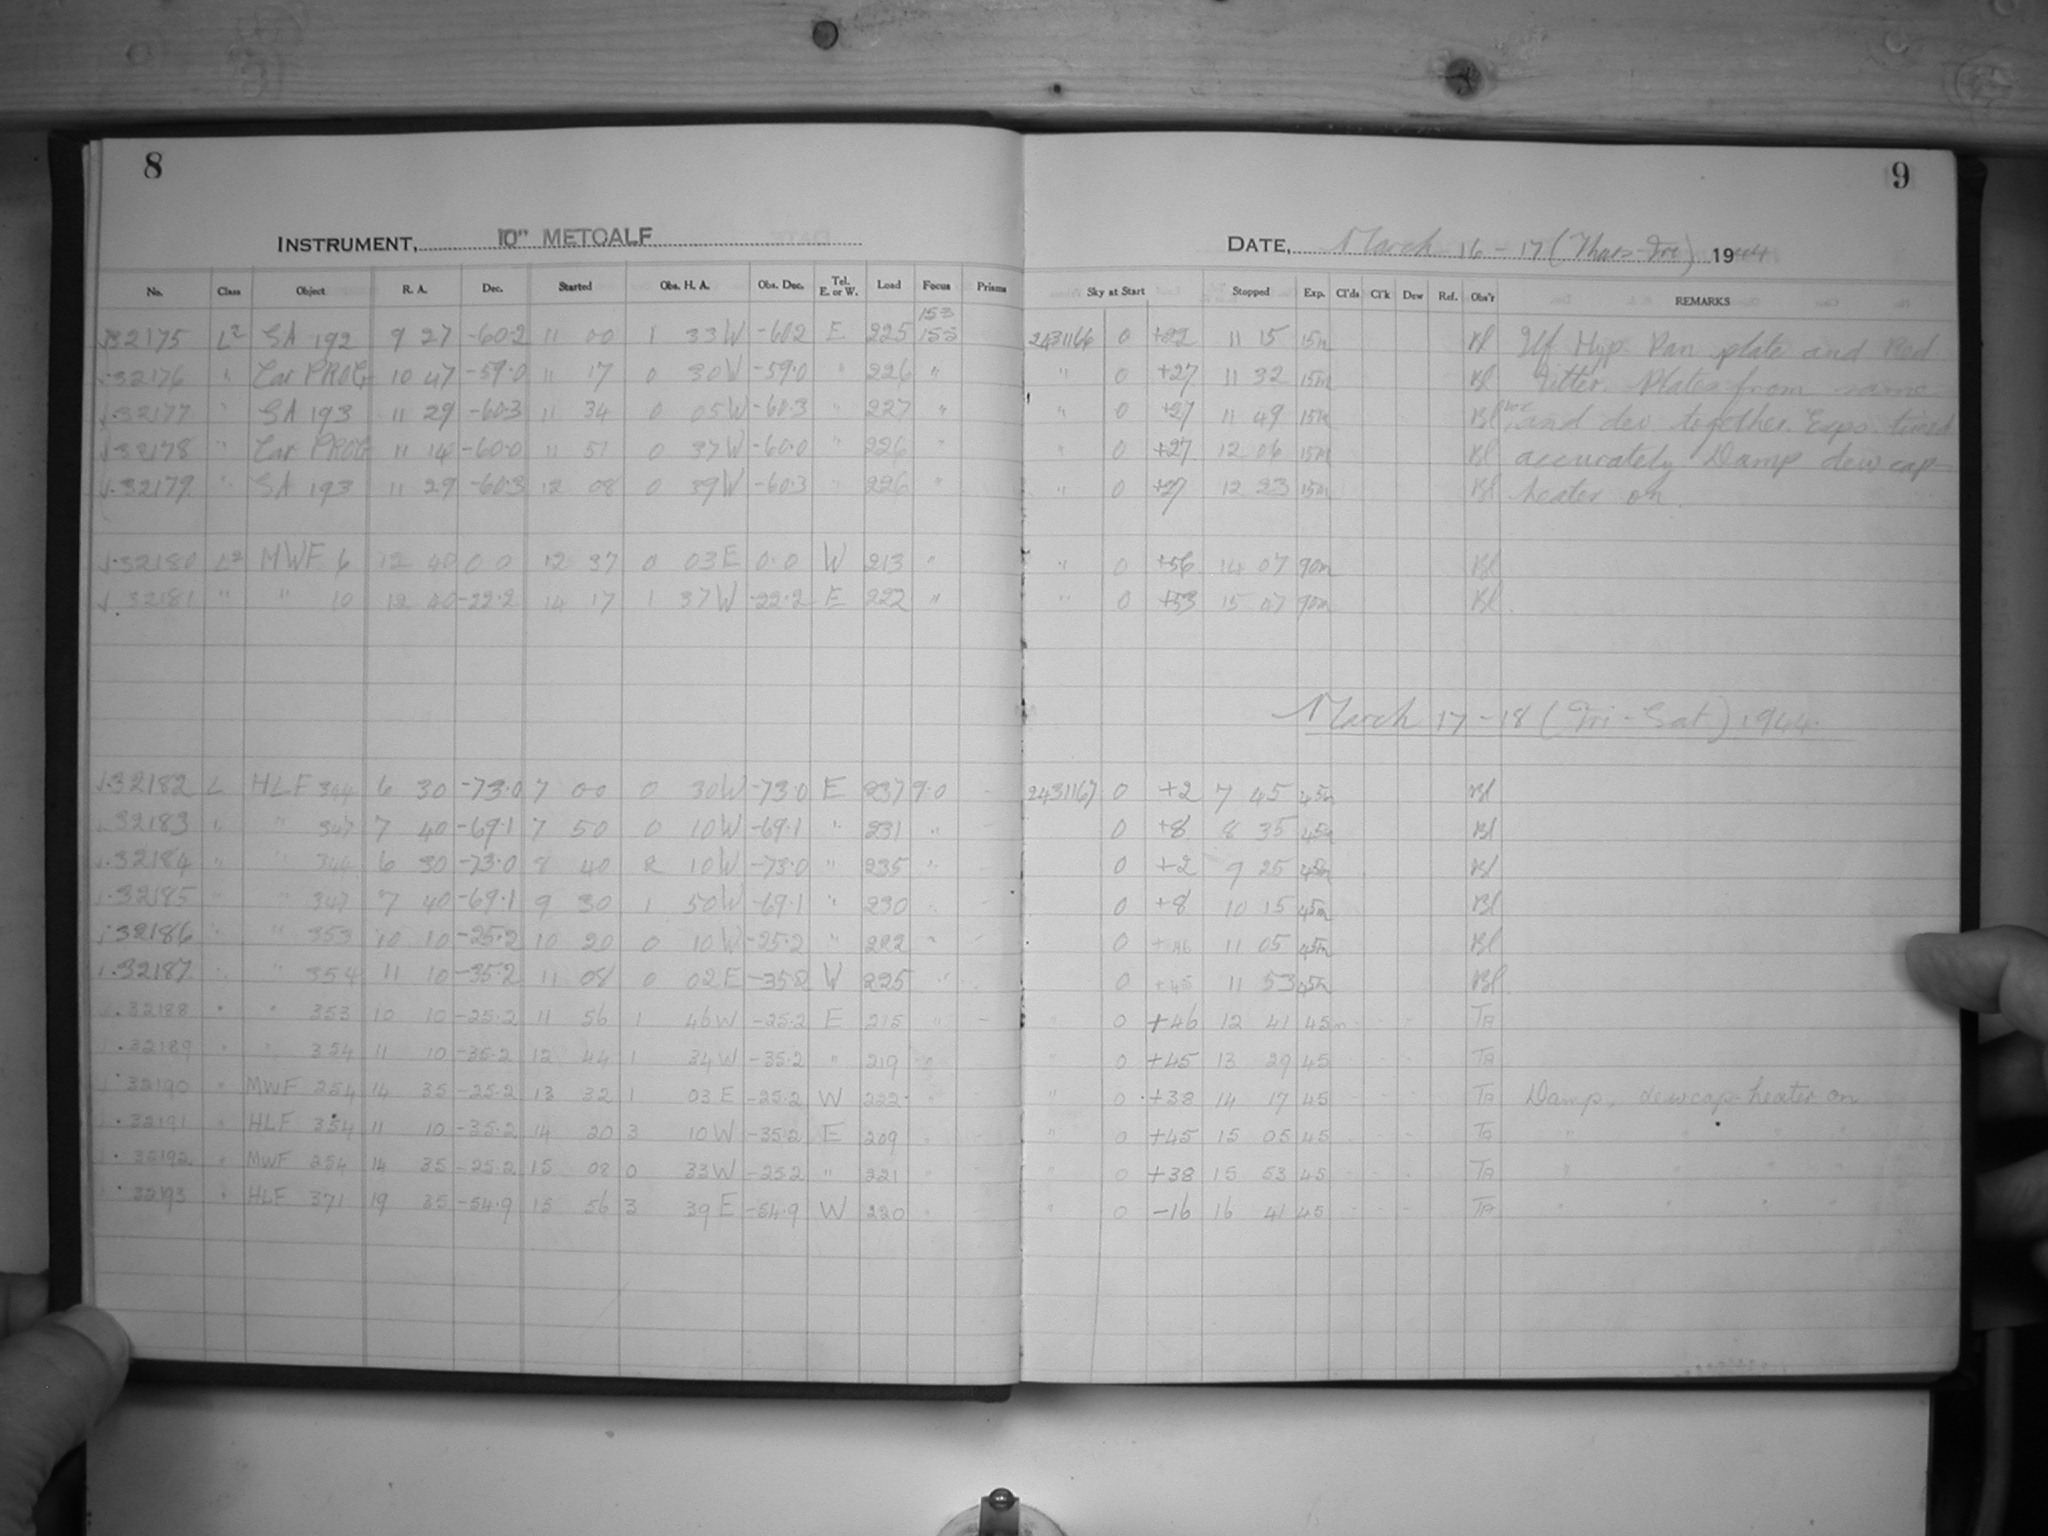 8
9
INSTRUMENT, 10" METCALF
DATE, March 16-17 (Thurs-Fri) 1944
No. Class Object R. A. Dec. Started Obs. H. A. Obs. Dec. Tel. E. or W. Load Focus Prisms Sky at Start Stopped Exp. Cl'ds Cl'k Dew Ref. Obs'r REMARKS
153
32175 L2 SA 192 9 27 -60.2 11 00 1 33W -60.2 E 225 2431166 0 +22 11 15 15m Bl Ilf Hyp Pan plate and Red
32176 " Car PROG 10 47 -59.0 11 17 0 30W -59.0 " 226 " " 0 +27 11 32 15m Bl filter. Plates from same
32177 " SA 193 11 29 -60.3 11 34 0 05W -60.3 " 227 " " 0 +27 11 49 15m Bl box and dev. together. Exps. timed
32178 " Car PROG 11 14 -60.0 11 51 0 37W -60.0 " 226 " " 0 +27 12 06 15m Bl accurately Damp dew cap
32179 " SA 193 11 29 -60.3 12 08 0 39W -60.3 " 226 " " 0 +27 12 23 15m Bl heater on.
32180 L2 MWF 6 12 40 0 0 12 37 0 03E 0.0 W 213 " " 0 +56 14 07 90m Bl
32181 " " 10 12 40 -22.2 14 17 1 37W -22.2 E 222 " " 0 +53 15 47 90m Bl.
March 17-18 (Fri-Sat) 1944.
32182 L HLF 344 6 30 -73.0 7 00 0 30W -73.0 E 237 9.0 2431167 0 +2 7 45 45m Bl
32183 " " 347 7 40 -69.1 7 50 0 10W -69.1 " 231 " 0 +8 8 35 45m Bl
32184 " " 344 6 30 -73.0 8 40 2 10W -73.0 " 235 " 0 +2 9 25 45m Bl
32185 " " 347 7 40 -69.1 9 30 1 50W -69.1 " 230 " 0 +8 10 15 45m Bl
32186 " " 353 10 10 -25.2 10 20 0 10W -25.2 " 222 " 0 +46 11 05 45m Bl
32187 " " 354 11 10 -35.2 11 08 0 02E -35.2 W 225 " 0 +45 11 53 45m Bl.
32188 " " 353 10 10 -25.2 11 56 1 46W -25.2 E 215 " " 0 +46 12 41 45m TA
32189 " " 354 11 10 -35.2 12 44 1 34W -35.2 " 219 " " 0 +45 13 29 45 TA
32190 " MWF 254 14 35 -25.2 13 32 1 03E -25.2 W 222 " " 0 +38 14 17 45 TA Damp, dewcap-heater on
32191 " HLF 354 11 10 -35.2 14 20 3 10W -35.2 E 209 " " 0 +45 15 05 45 TA " " " "
32192 " MWF 254 14 35 -25.2 15 08 0 33W -25.2 " 221 " " 0 +38 15 53 45 TA " " " "
32193 " HLF 371 19 35 -54.9 15 56 3 39E -54.9 W 220 " " 0 -16 16 41 45 TA " " " "